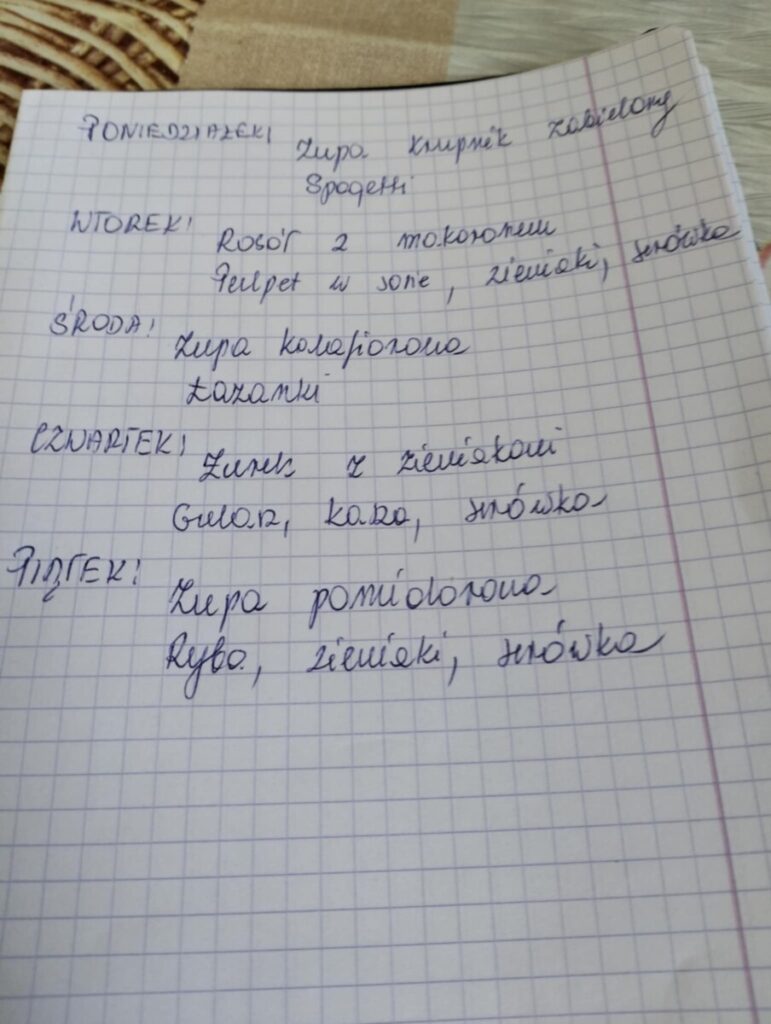 PONIEDZIAŁEK! Zupa krupnik zabielany
Spagetti
WTOREK! Rosół z makaronem
Pulpet w sosie, ziemiaki, surówka
ŚRODA! Zupa kalafiorowa
Łazanki
CZWARTEK! Żurek z ziemiakami
Gulasz, kasza, surówka
PIĄTEK! Zupa pomidorowa
Ryba, ziemiaki, surówka